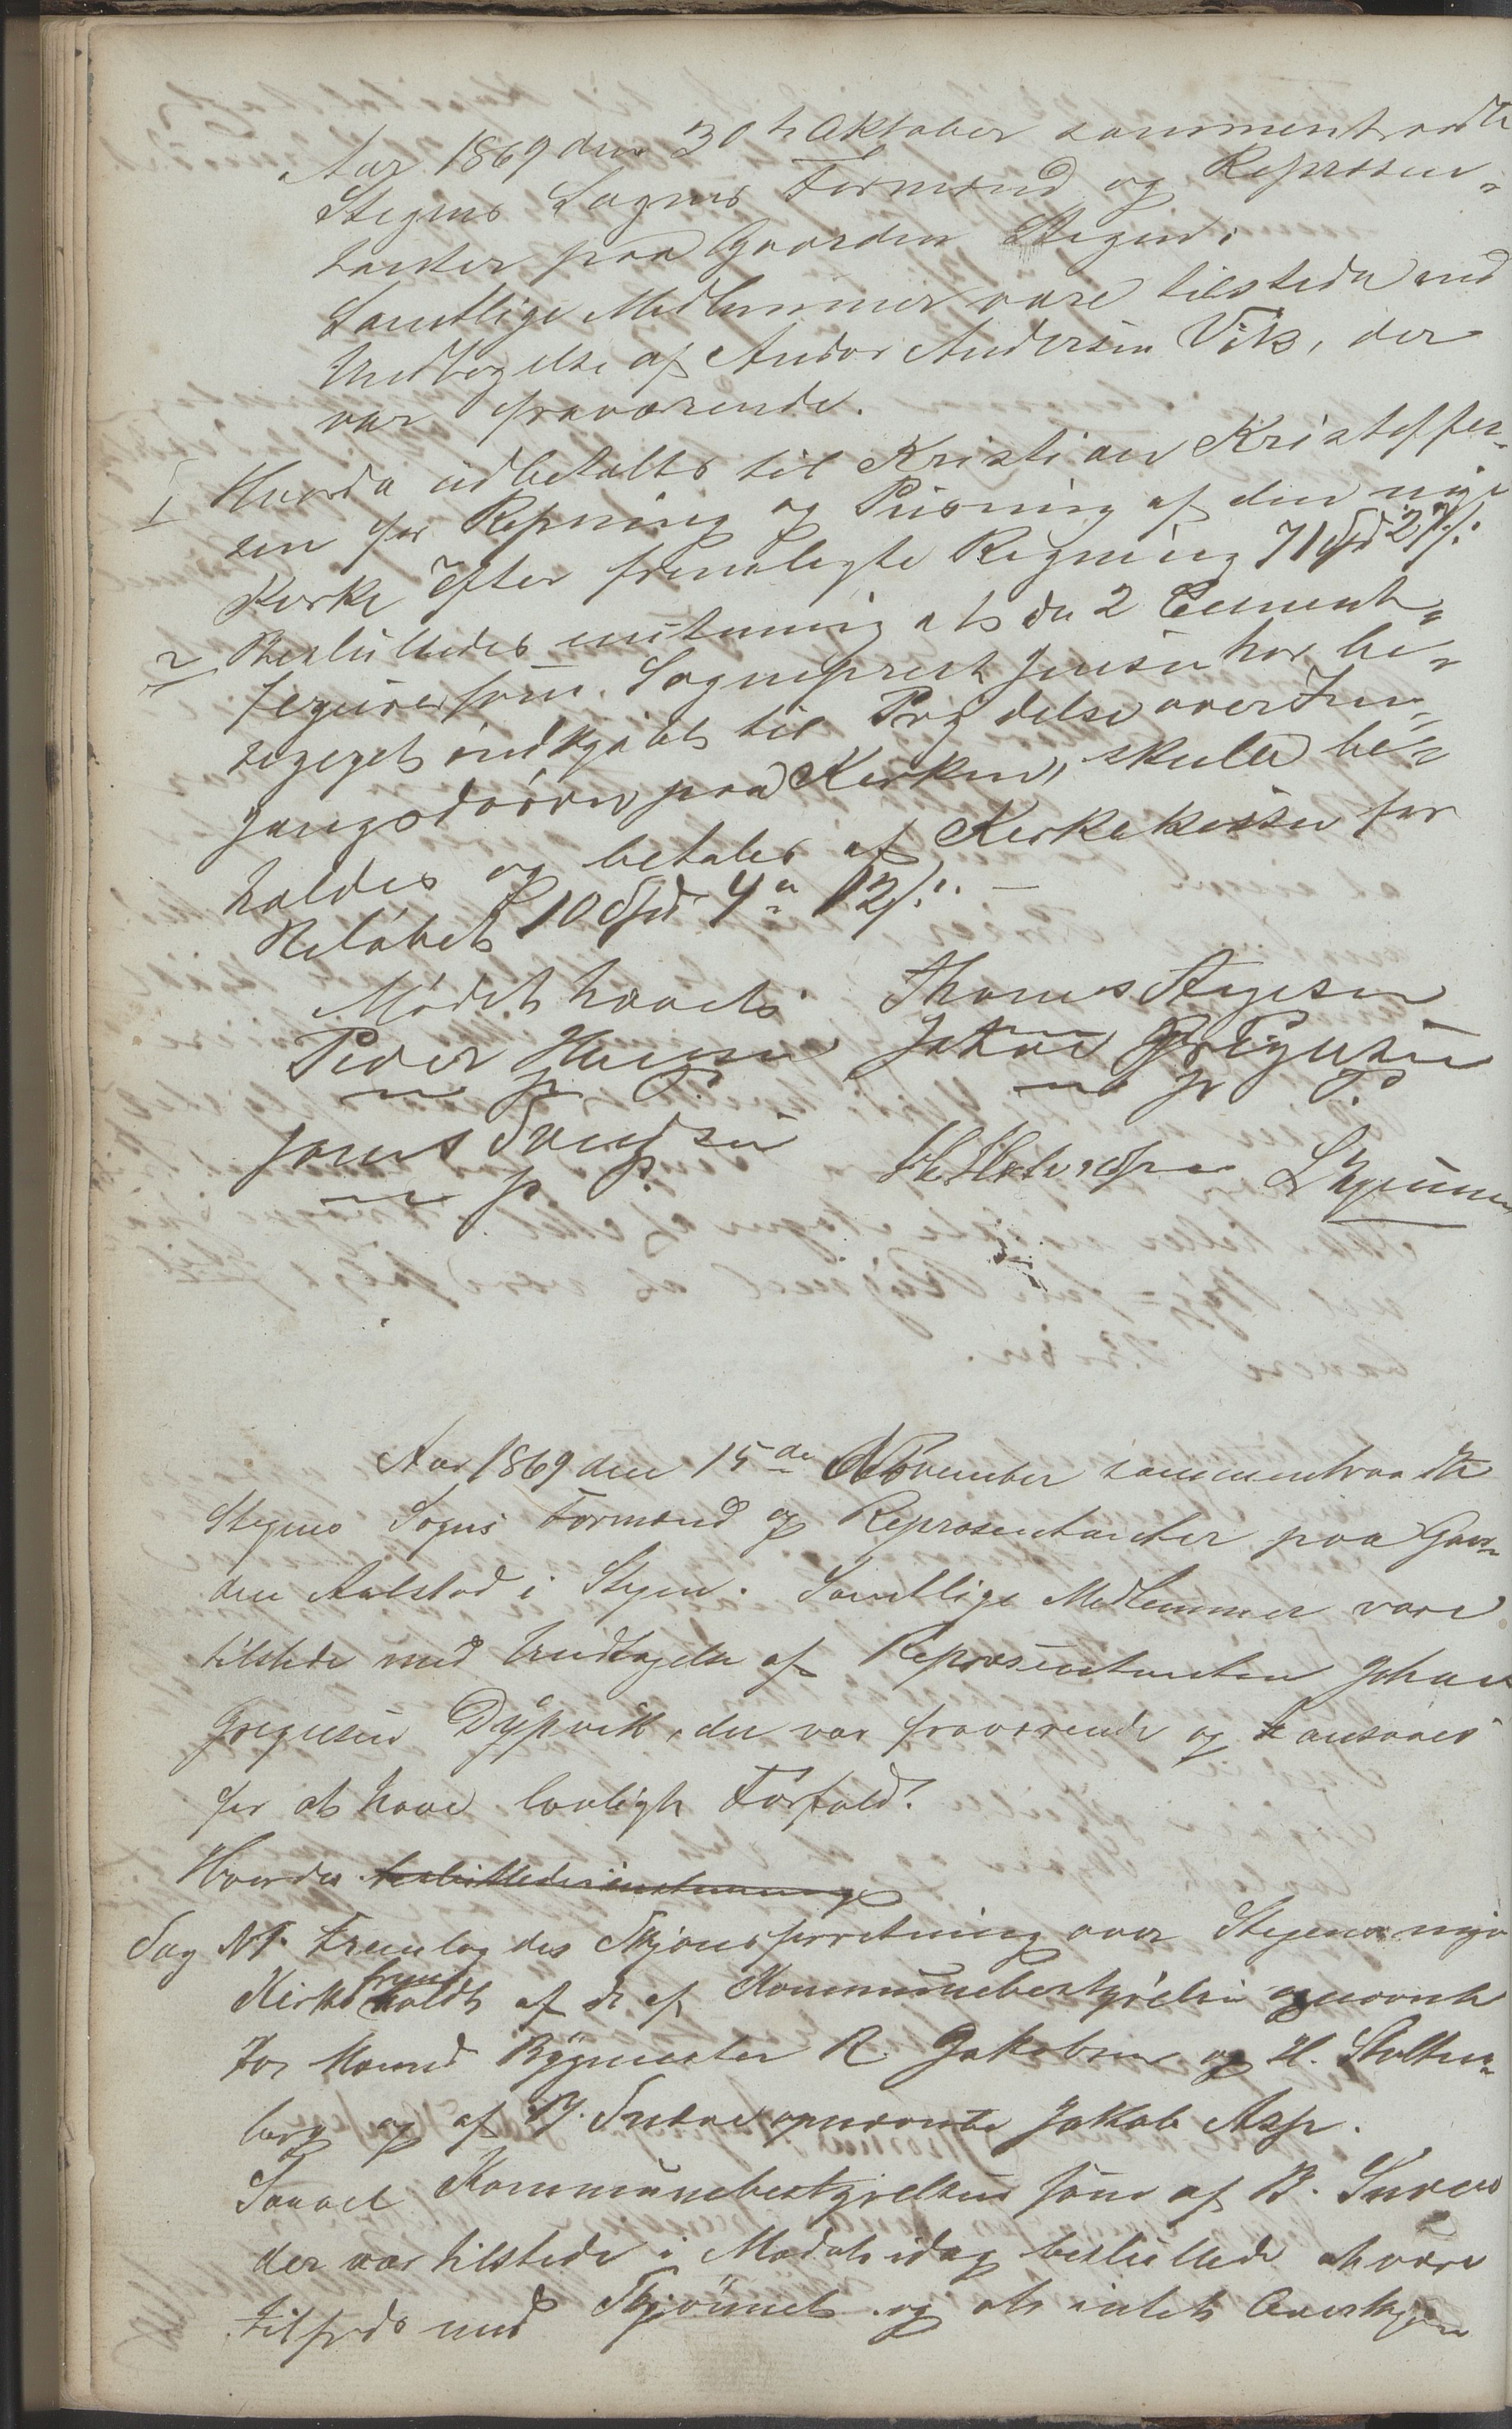 Aar 1869 den 30te Oktober sammentraadte
Stegens Sogns Formænd og Repræsen-
tanter paa Gaarden Stegen.
Samtlige Medlemmer vare tilstede med
Undtagelse af Andor Andersen Vik, der
var fraværende.
1 Hvorda udbetaltes til Kristian Kristoffer-
sen for Repning og Pusning af den nye
Kirke efter fremlagte Regning 71 Spd 27 s.
2 Besluttedes enstemig at de 2 Cement-
figurer som Sogneprest Jensen har be-
sørget indkjøbt til Prydelse over Ind-
gangsdøren paa Kirken, skulle be-
holdes og betales af Kirkekassen for
Beløbet 10 Spd 4 " 12 s. —
Mødet hævet Thomas Aagesen
Peder Hansen Johan Gregusen
m p P. m p P.
Jonas Svendsen
m p P. L Hjemmen
Aar 1869 den 15de November sammentraadte
Stegens Sogns Formænd og Repræsentanter paa Gaar-
den Aalstad i Stegen. Samtlige Medlemmer vare
tilstede med Undtagelse af Repræsentanten Johan
Gregusen Dypvik, der var fraværende og ansaaes
for at have lovligt Forfald.
Hvorda besluttedes enstemmig
Sag N 1. Fremlagdes Skjønsforretning over Stegens nye
Kirke fremholdt af de af Kommunebestyrelsen opnævnte
to Mænd Bygmester R. Jakobsen og H. Stolten-
berg og af B. Snever opnævnte Jakob Asp.
Saavel Kommunebestyrelsen som af B. Snever
der var tilstede i Mødet idag besluttede at være
tilfreds med Skjønnet og at intet Overskjøn